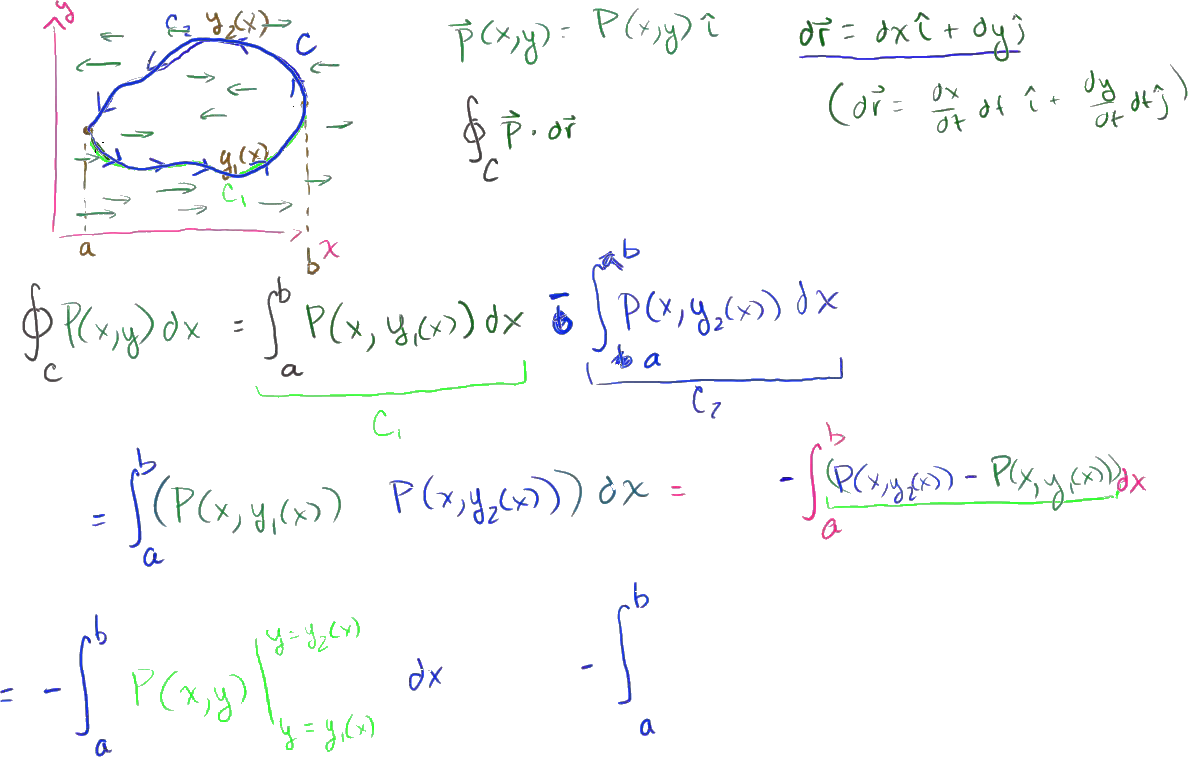 y
C₂ y₂(x) C
y₁(x)
C₁
a b x
P⃗(x,y) = P(x,y) î
dr⃗ = dx î + dy ĵ
(dr⃗ = dx/dt dt î + dy/dt dt ĵ)
∮_C P⃗ · dr⃗
∮_C P(x,y) dx = ∫_a^b P(x, y₁(x)) dx - ∫_a^b P(x, y₂(x)) dx
C₁ C₂
= ∫_a^b (P(x, y₁(x)) P(x, y₂(x))) dx = - ∫_a^b (P(x, y₂(x)) - P(x, y₁(x))) dx
= - ∫_a^b P(x,y) |_{y = y₁(x)}^{y = y₂(x)} dx - ∫_a^b